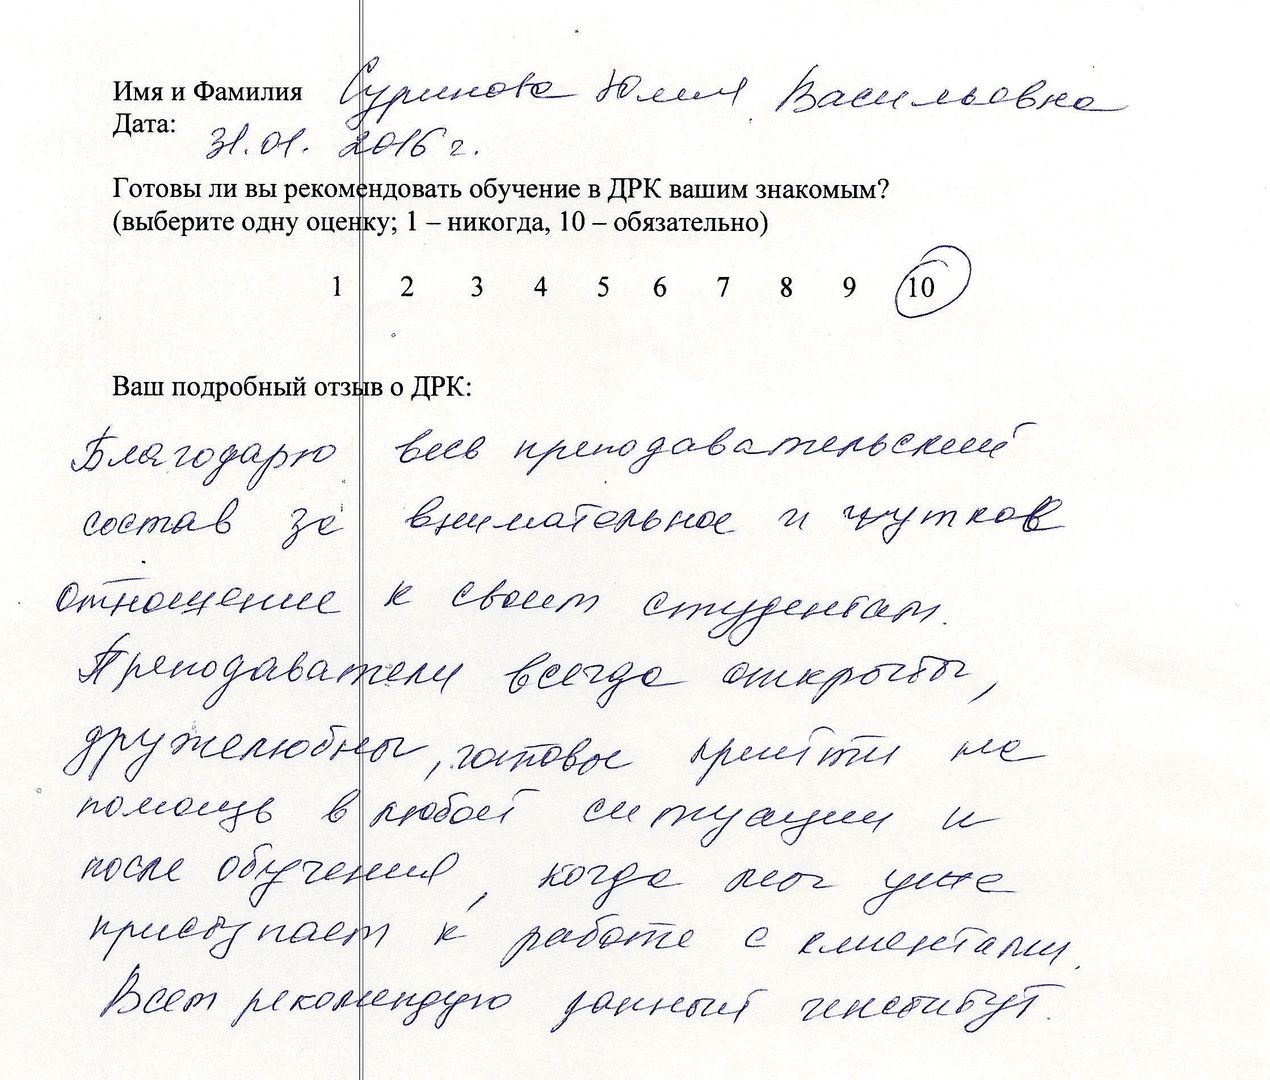 Имя и Фамилия Суринова Юлия Васильовна
Дата: 31.01. 2016 г.
Готовы ли вы рекомендовать обучение в ДРК вашим знакомым?
(выберите одну оценку; 1 – никогда, 10 – обязательно)
1 2 3 4 5 6 7 8 9 10
Ваш подробный отзыв о ДРК:
Благодарю весь преподавательский
состав за внимательное и чуткое
отношение к своим студентам.
Преподаватели всегда открыты,
дружелюбны, готовы прийти на
помощь в любой ситуации и
после обучения, когда мы уже
приступаем к работе с клиентами.
Всем рекомендую данный институт.